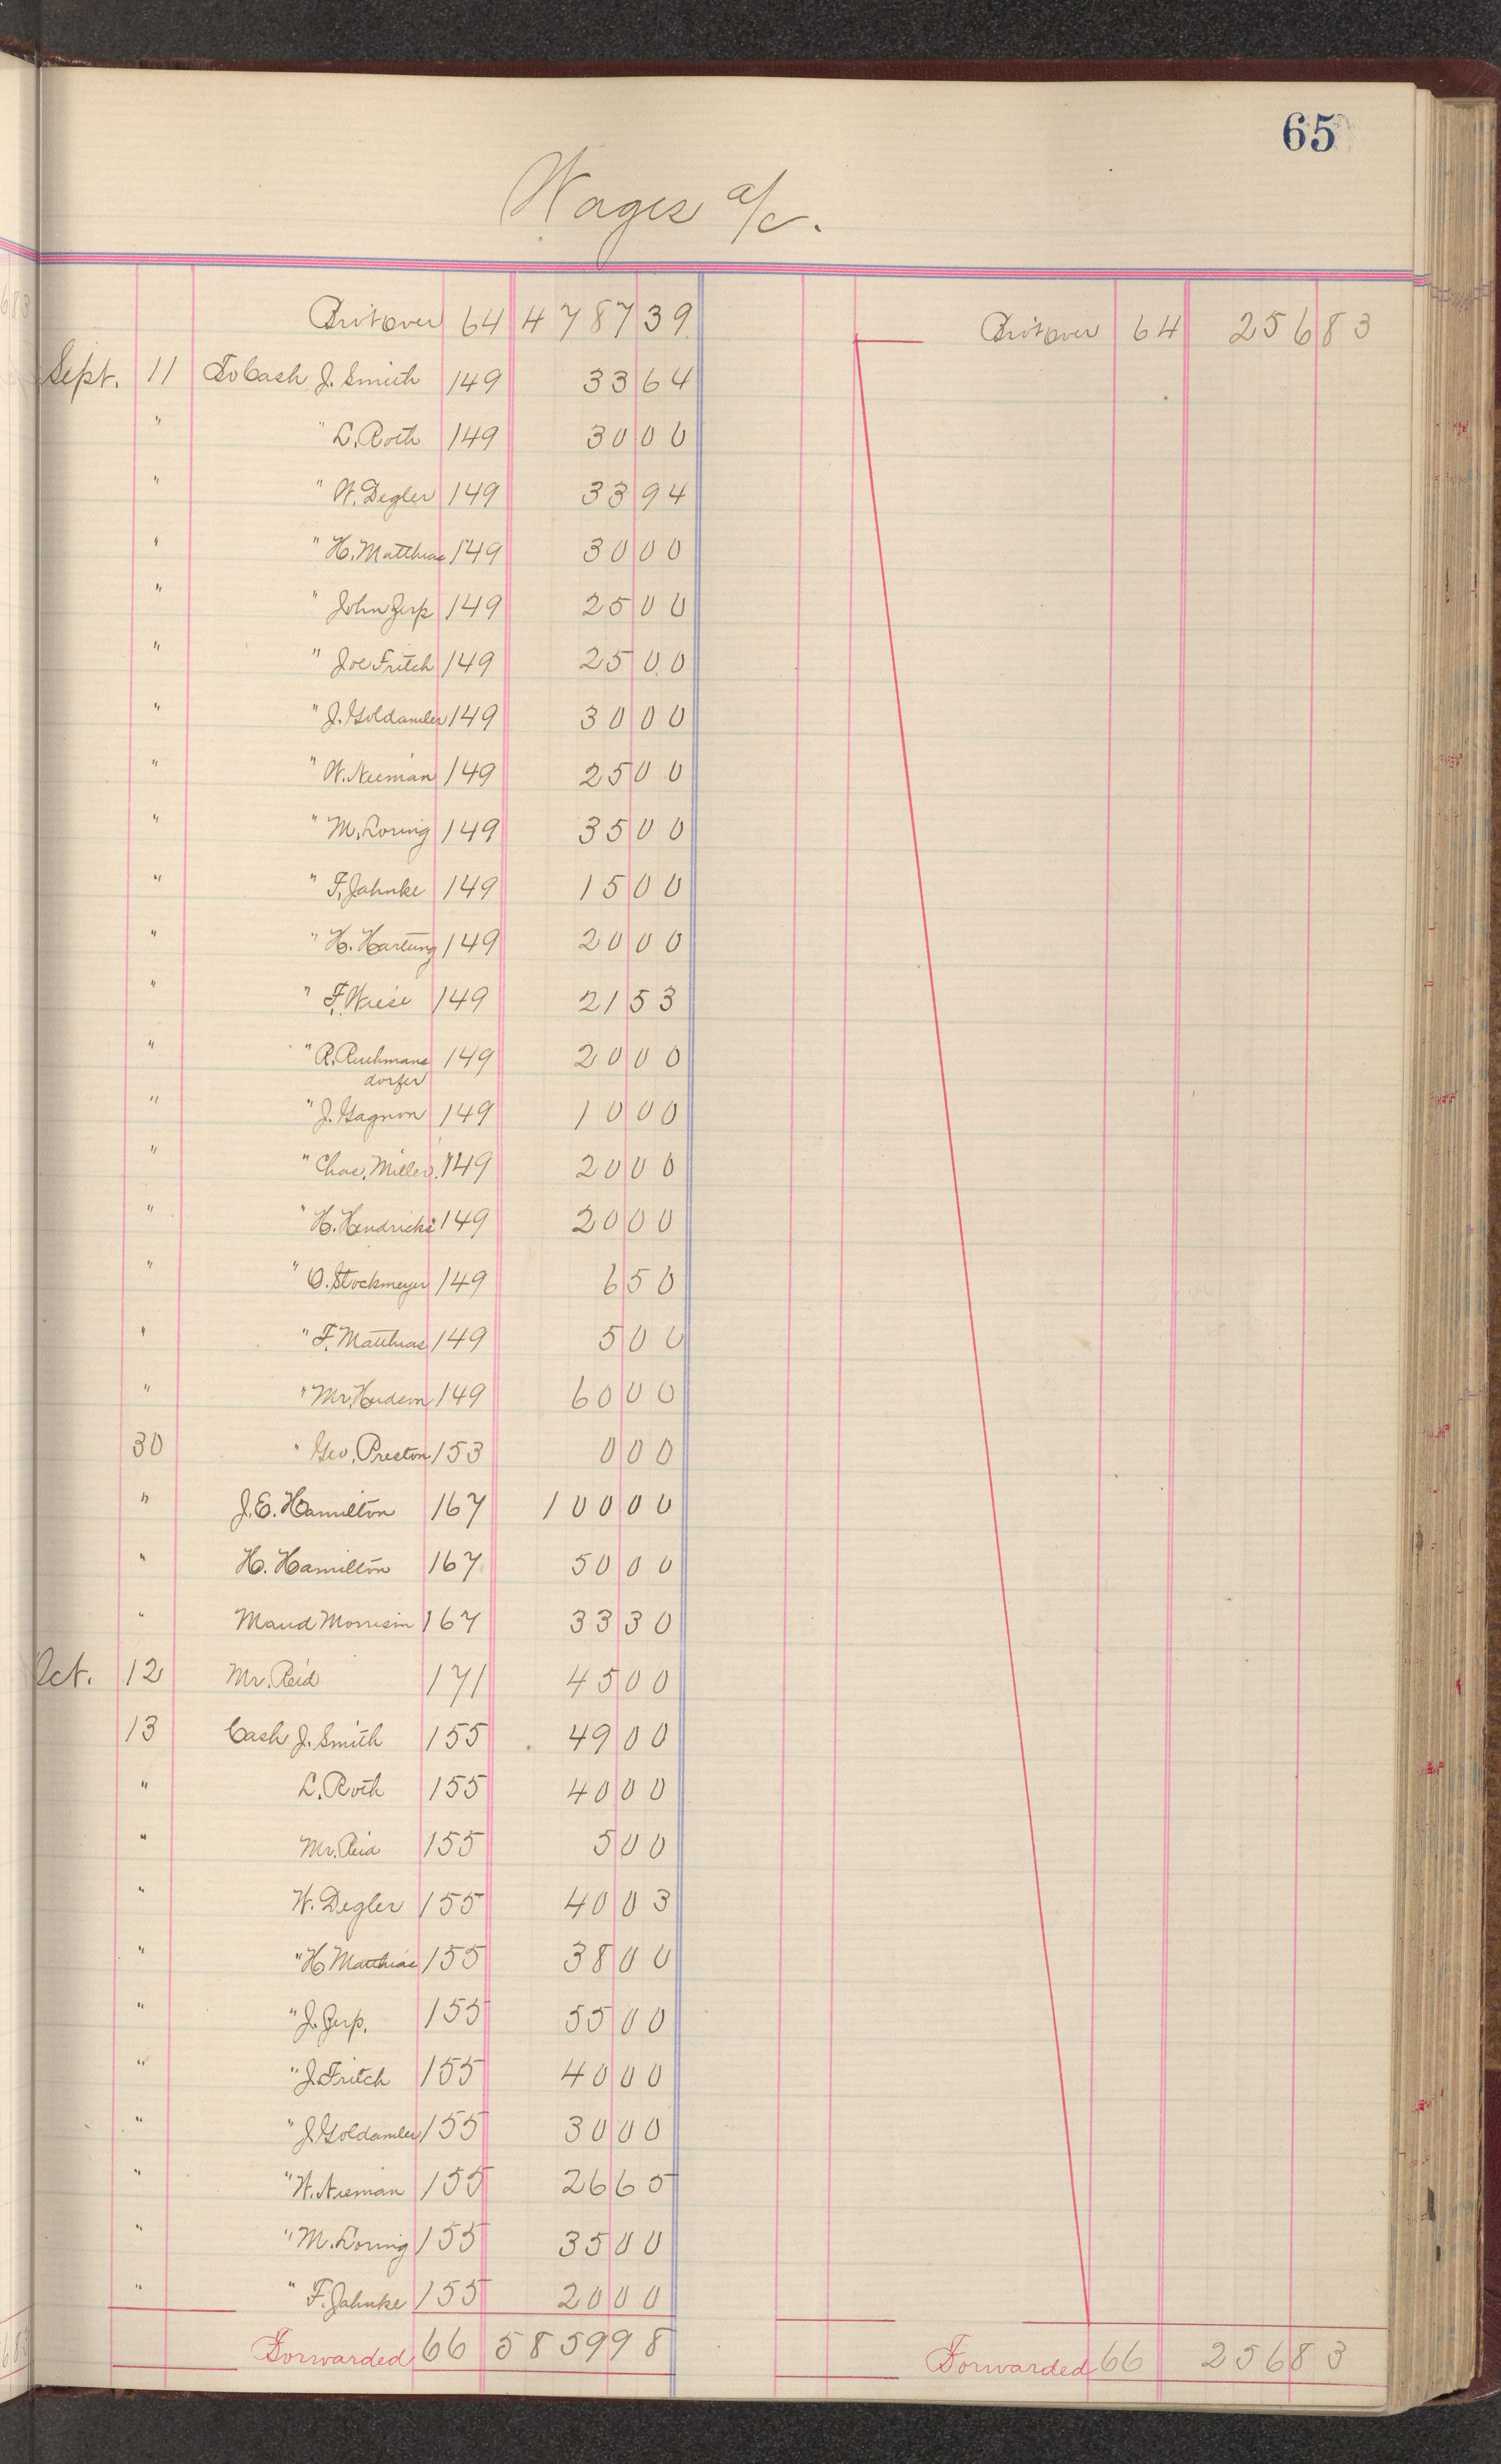 65
Wages a/c.
Brt over 64 4787 39
Brt over 64 256 83
Sept. 11 To Cash J. Smith 149 33 64
" " L. Roth 149 30 00
" " W. Degler 149 33 94
" " H. Matthias 149 30 00
" " John Zerp 149 25 00
" " Joe Fritch 149 25 00
" " J. Goldamler 149 30 00
" " W. Nieman 149 25 00
" " M. Loring 149 35 00
" " F. Jahnke 149 15 00
" " H. Hartung 149 20 00
" " F. Wiese 149 21 53
" " R. 149 20 00
dorfer
" " J. Gagnon 149 10 00
" " Chas. Miller 149 20 00
" " H. Hendricks 149 20 00
" " O. Stockmeyer 149 6 50
" " F. Matthias 149 5 00
" " Mr. Hudson 149 60 00
30 " Geo. Preston 153 0 00
" J. E. Hamilton 167 100 00
" H. Hamilton 167 50 00
" Maud Morrison 167 33 30
Oct. 12 Mr. Reid 171 45 00
13 Cash J. Smith 155 49 00
" L. Roth 155 40 00
" Mr. Reid 155 5 00
" W. Degler 155 40 03
" " H Matthias 155 38 00
" " J. Zerp. 155 55 00
" " J. Fritch 155 40 00
" " J. Goldamler 155 30 00
" " W. Nieman 155 26 65
" " M. Loring 155 35 00
" " F. Jahnke 155 20 00
Forwarded 66 5859 98
Forwarded 66 256 83